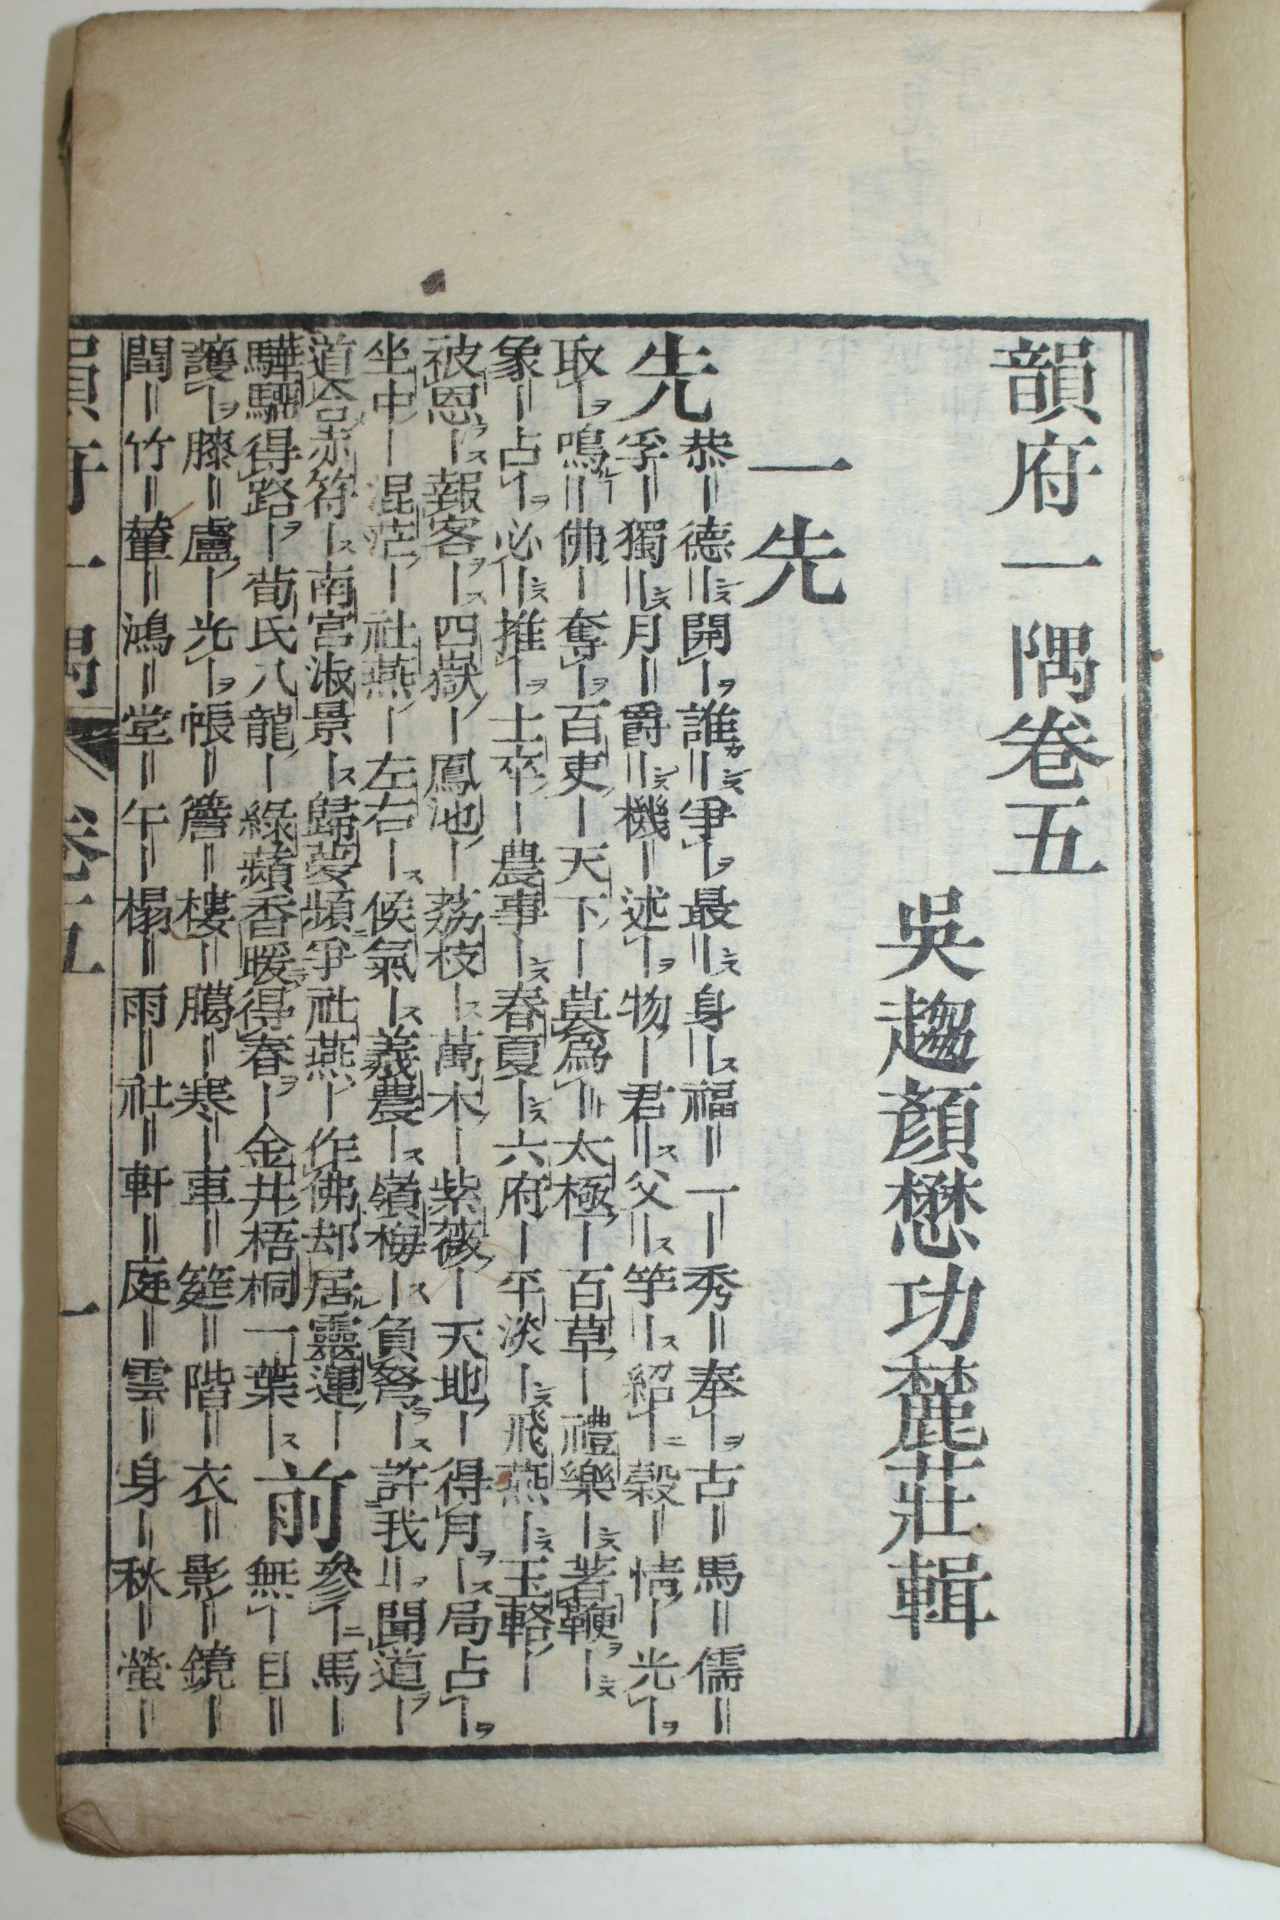 韻府一隅卷五
吳趨顏懋功麓莊輯
一先
先
恭｜德‖開｜ヲ誰‖爭｜ヲ最‖身‖ス福‖一｜秀‖奉｜ヲ古‖馬‖儒‖
孚‖獨‖月‖爵‖機‖述｜ヲ物｜君‖ス父‖ス竿‖ス紹｜ニ穀｜情｜光｜ヲ
取｜ヲ鳴‖佛｜奪｜ヲ百吏｜天下｜莫爲｜太極｜百草｜禮樂｜著鞭｜
象｜占｜ヲ必‖推｜ヲ士卒｜農事｜春夏｜六府｜平淡｜飛燕｜玉輅｜
被恩｜報客｜四嶽｜鳳池｜荔枝｜ス萬木｜紫薇｜天地｜得月｜局占｜ヲ
坐中｜混茫｜社燕｜左右｜ス候氣｜ス義農｜ス嶺梅｜ス負弩｜許我‖聞道｜
道合赤符｜ス南宮淑景｜ス歸夢頻爭社燕｜作佛却居靈運｜前參｜ニ馬｜
驊騮得路｜荀氏八龍｜綠蘋香暖得春｜金井梧桐一葉｜ス無｜目‖
護｜ヲ膝‖盧｜光｜ヲ帳‖簷‖樓‖臈‖寒‖車‖筵‖階‖衣‖影‖鏡‖
閶‖竹‖輦‖鴻‖堂‖午‖榻‖雨‖社‖軒‖庭‖雲‖身‖秋‖螢‖
韻府一隅 卷五 一